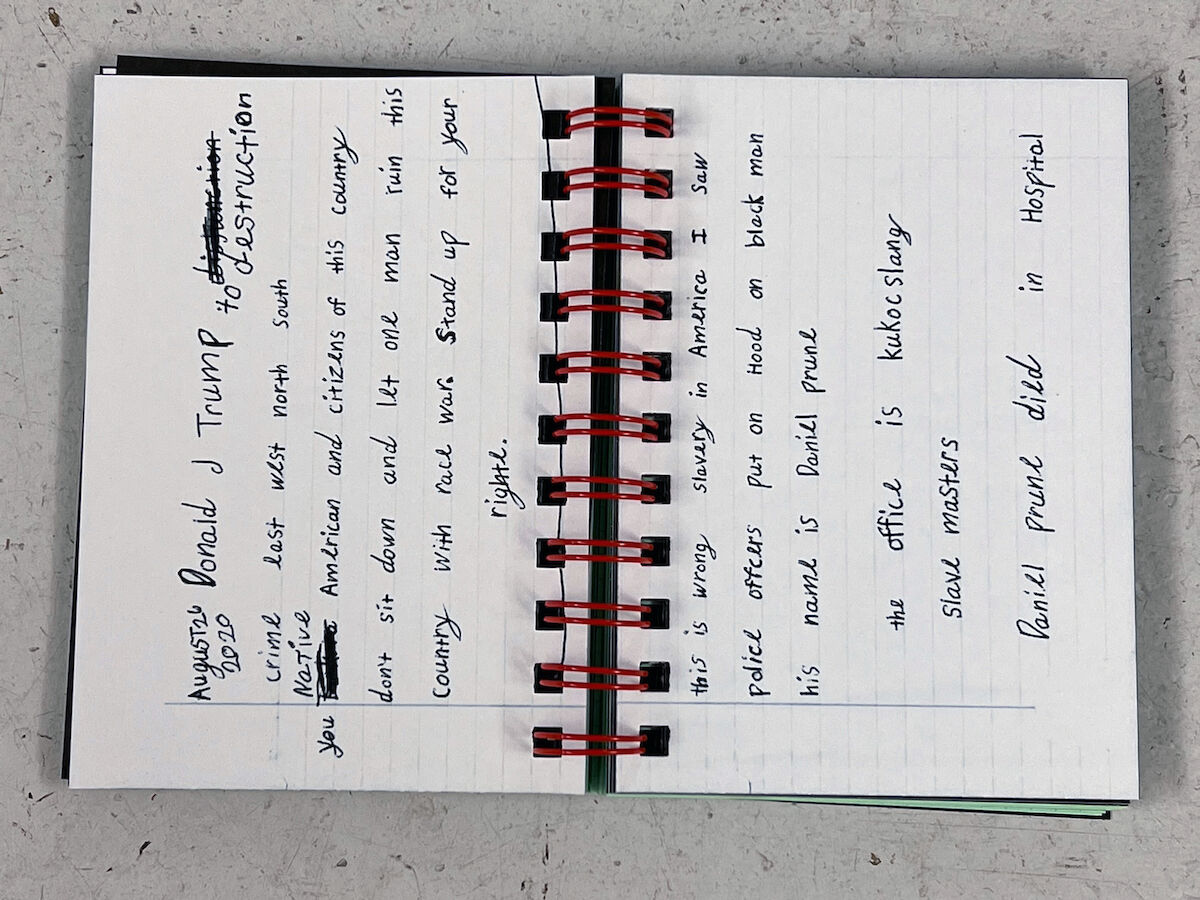 August 26 Donald J Trump to destruction
2020
crime east west north south
Native
you American and citizens of this country
don't sit down and let one man ruin this
Country with race war. Stand up for your
righte.
this is wrong slavery in America I saw
police offcers put on Hood on black man
his name is Daniel prune
the office is kukocslang
slave masters
Daniel prune died in Hospital